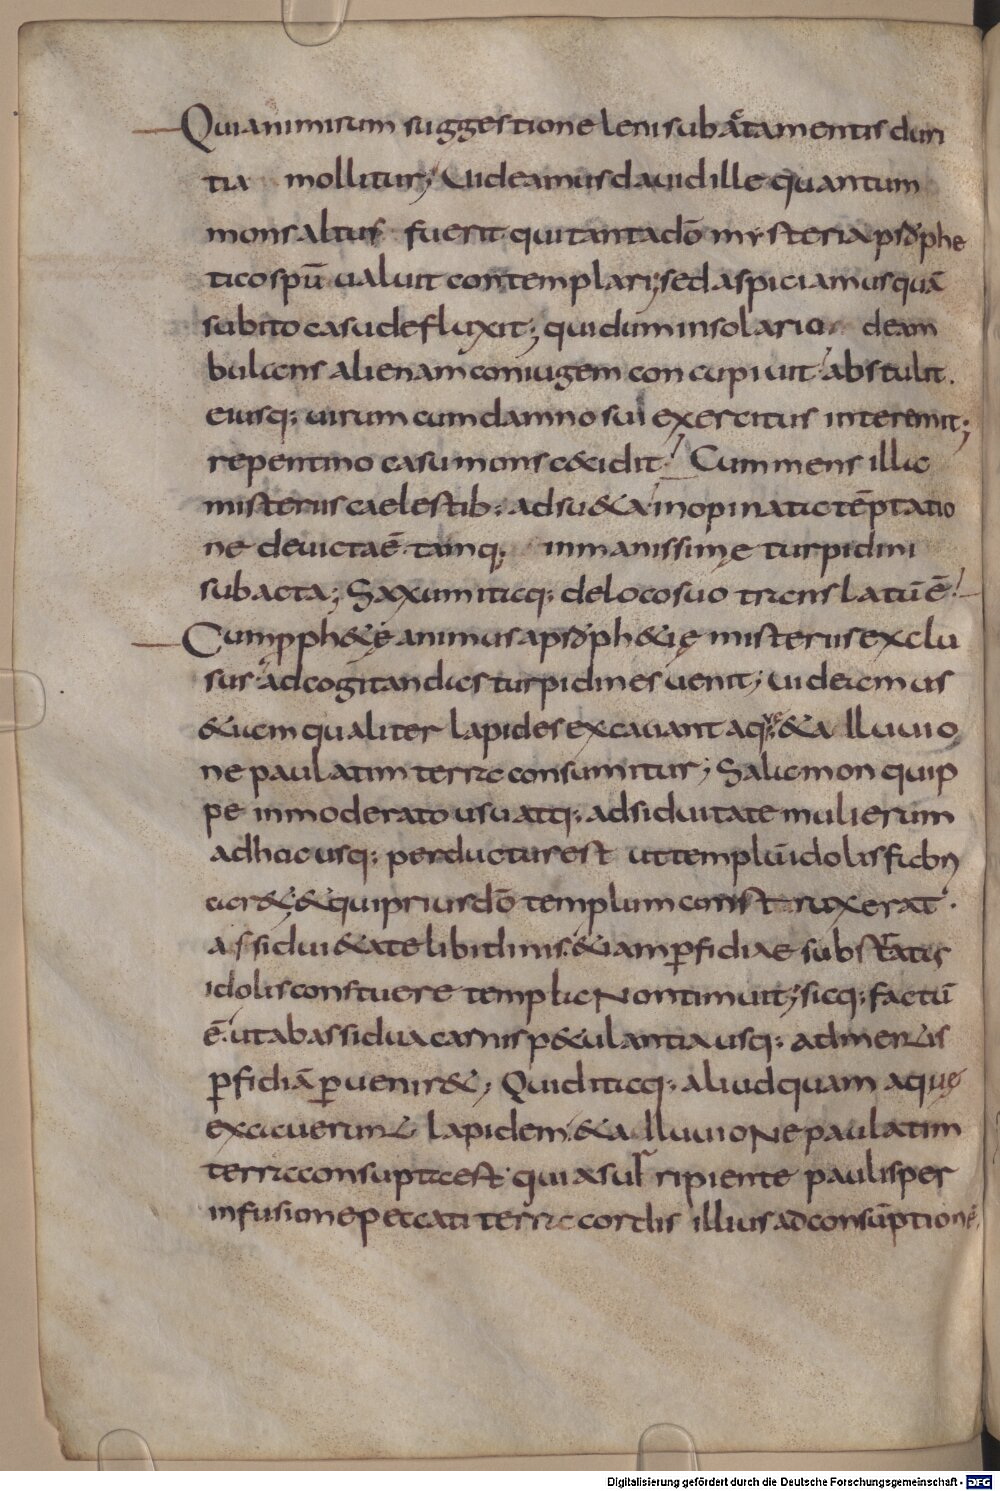 Quianimirum suggestione leni subacta mentis duri
tia mollitur; Uideamus dauid ille quantum
mons altus fuerit qui tanta dō mysteria prophe
tico spū ualuit contemplari; sed aspiciamus quā
subito casu defluxit; qui dum in solario deam
bulans alienam coniugem concupiuit abstulit.
eiusq; uirum cum damno sui exercitus interemit;
repentino casu mons cecidit; Cum mens illa
misteriis caelestib; adsu&a inopinata tēptatio
ne deuicta ē. tamq; inmanissime turpidini
subacta; Saxum itaq; de loco suo translatū ē;
Cum pph&ę animus a proph&ię misteriis exclu
sus ad cogitandas turpidines uenit; uideamus
&iam qualiter lapides excauant aquę &alluuio
ne paulatim terra consumitur; Salamon quip
pe inmoderato usu atq; adsiduitate mulierum
ad hoc usq; perductus est ut templū idolis fabri
car&; & qui prius dō templum construxerat.
assidui&ate libidinis &iam ꝑfidiae substratus
idolis construere templa non timuit; sicq; factū
ē. ut ab assidua carnis p&ulantia usq; ad mentis
ꝑfidiā ꝑuenir&; Quid itaq; aliud quam aquę
excauerunt lapidem &alluuione paulatim
terra consupta est. quia surripiente paulisper
infusione peccati terra cordis illius ad consūptionē
Digitalisierung gefördert durch die Deutsche Forschungsgemeinschaft - DFG